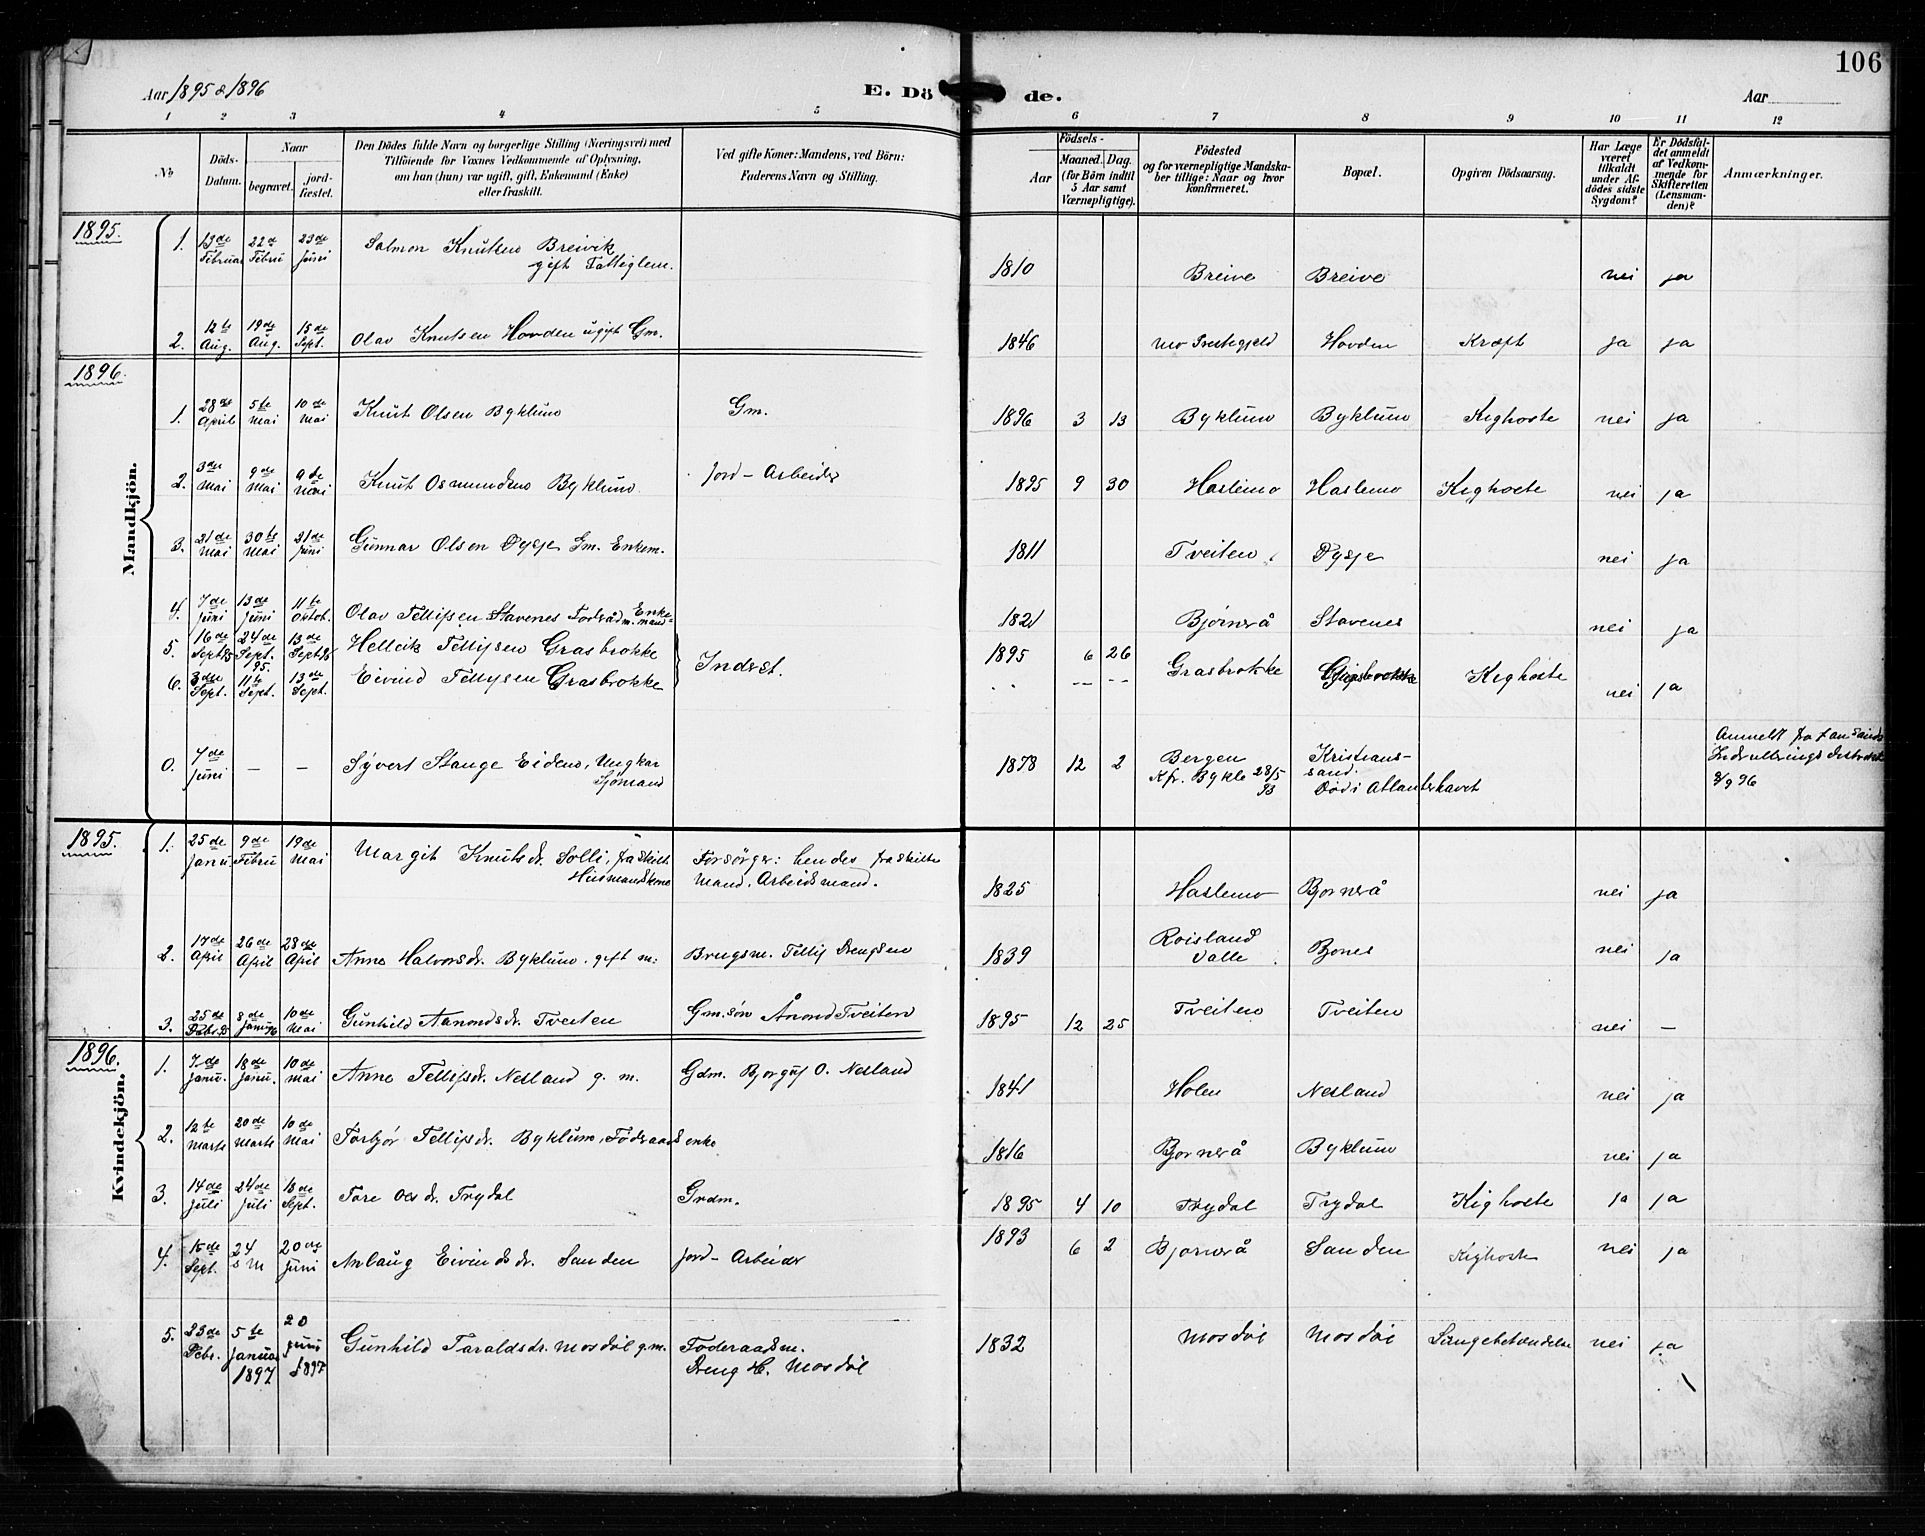 106
Aar 1895 & 1896
E. Dö de.
Aar
1 2 3 4 5 6 7 8 9 10 11 12
No
Döds-Datum.
Naar
begravet.
jord-fæstet.
Den Dödes fulde Navn og borgerlige Stilling (Næringsvei) med
Tilföiende for Voxnes Vedkommende af Oplysning,
om han (hun) var ugift, gift, Enkemand (Enke)
eller fraskilt.
Ved gifte Koner: Mandens, ved Börn:
Faderens Navn og Stilling.
Födsels-
Aar
Maaned. Dag.
(for Börn indtil
5 Aar samt
Værnepligtige).
Födested
og for værnepligtige Mandska-
ber tillige: Naar og hvor
konfirmeret.
Bopæl.
Opgiven Dödsaarsag.
Har Læge
været
tilkaldt
under Af-
dödes sidste
Sygdom?
Er Dödsfal-
det anmeldt
af Vedkom-
mende for
Skifteretten
(Lensman-
den)?
Anmærkninger.
Mandkjön.
1895.
1. 13de Februar 22de Febru 23de Juni Salmon Knutsen Breivik gift Fattiglem. 1810 Breive Breive nei ja
2. 12te Aug. 19de Aug. 15de Sept. Olav Knutsen Hovden ugift Gm. 1846 Mo Prestegjeld Hovden Kræft ja ja
1896.
1. 28de April 5te Mai 10de Mai Knut Olsen Byklum Gm. 1896 3 13 Byklum Byklum Kighoste nei ja
2. 3die Mai 9de Mai 9de Mai Knut Osmundsen Byklum Jord-Arbeider 1895 9 30 Haslemo Haslemo Kighoste nei ja
3. 21de Mai 30te Mai 21de Juni Gunnar Olsen Dysje Gm. Enkem. 1811 Tveiten Dysje nei ja
4. 7de Juni 13de Juni 11te Oktob. Olav Tellefsen Stavenes Foderådm. Enkemand 1821 Bjørnerå Stavenes nei ja
5. 16de Sept 95 24de Sept. 95. 13de Sept 96 Hellvik Tellefsen Grasbrokke 1895 6 26
6. 3die Sept. 11te Sept. 13de Sept. Eivind Tellefsen Grasbrokke Inderst. .. -- -- Grasbrokke Grasbrokke Kighoste nei ja
0. 4de Juni — — Syvert Stange Eidens, Ungkar Sjømand 1878 12 2 Bergen Kfr. Bykle 28/5 93 Kristianssand. Død i Atlanterhavet Anmelt fra 8/9 96
Kvindekjön.
1895.
1. 25de Janu. 9de Febru 19de Mai Margit Knutsdr. Solli, fraskilt Husmandskone Forsørger: hendes fraskilte Mand. Arbeidsmand. 1825 Haslemo Bjørnerå nei ja
2. 17de April 26de April 28de April Anne Halvorsdr. Byklum. gift m: Brugsm. Tellef Drengsen 1839 Roisland Valle Bones nei ja
3. 25de Debr. 95 8de Janu 96 10de Mai Gunhild Aanondsdr. Tveiten Gm.søn Ånond Tveiten 1895 12 25 Tveiten Tveiten nei —
1896.
1. 7de Janu. 18de Janu. 10de Mai Anne Tellefsdr. Nesland g. m. Gdm. Bjorguf O. Nesland 1841 Holen Nesland nei ja
2. 12te Marts 20de Marts 10de Mai Torbjør Tellefsdr. Byklum, Föderaads enke 1816 Bjørnerå Byklum nei ja
3. 14de Juli 24de Juli 13de Sept. Tore Olsdr. Trydal Grdm. 1895 4 10 Trydal Trydal Kighoste ja ja
4. 15de Sept. 24 s M 20de Juni Anlaug Eivindsdr. Sanden Jord-Arbeider 1893 6 2 Bjørnerå Sanden Kighoste nei ja
5. 23de Debr. 5te Januar 1897 20 Juni 1897 Gunhild Taraldsdr. Mosdøl g.m. Föderaadsm. Dreng H. Mosdøl 1832 Mosdøl Mosdøl Lungebetændelse nei ja